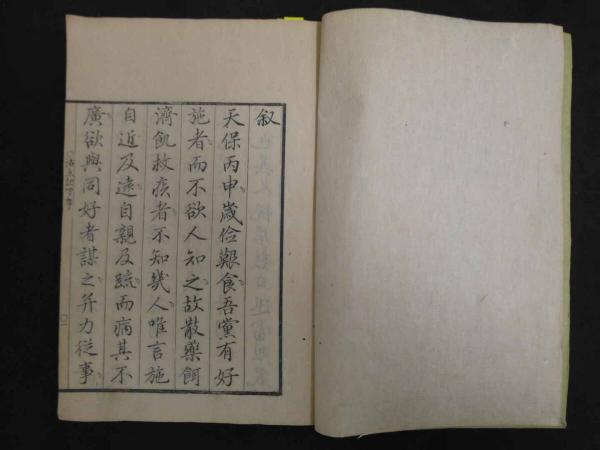 叙
天保丙申歲儉艱食吾黨有好
施者而不欲人知之故散藥餌
濟飢救疾者不知幾人唯言施
自近及遠自親及疏而病其不
廣欲與同好者謀之并力從事